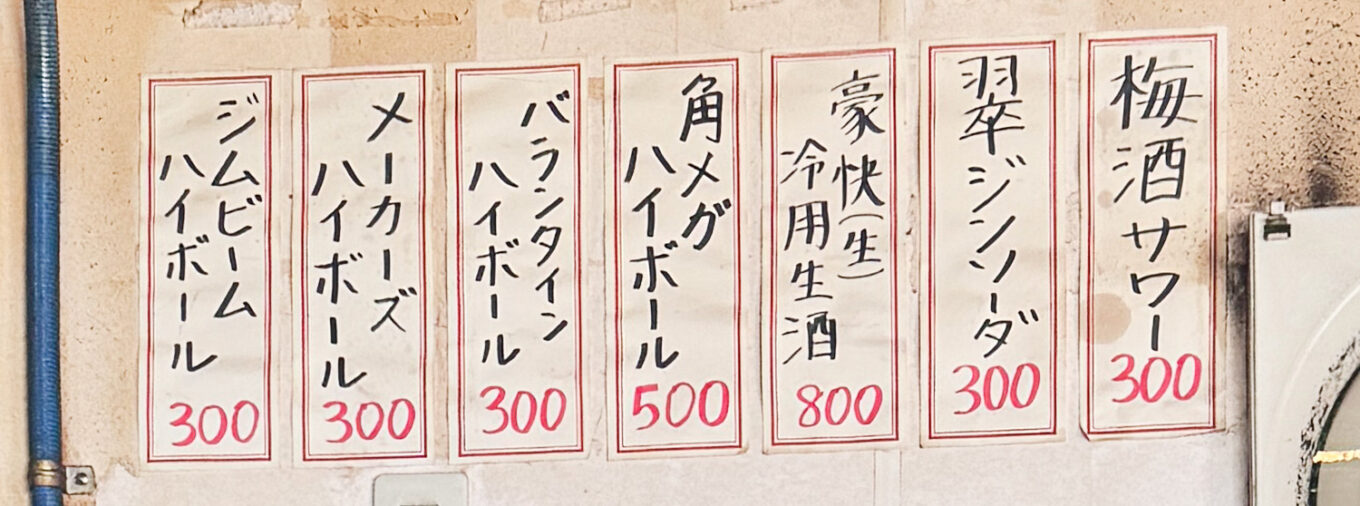 梅酒サワー
300
翠ジンソーダ
300
豪快(生)
冷用生酒
800
角メガ
ハイボール
500
バランタイン
ハイボール
300
メーカーズ
ハイボール
300
ジムビーム
ハイボール
300